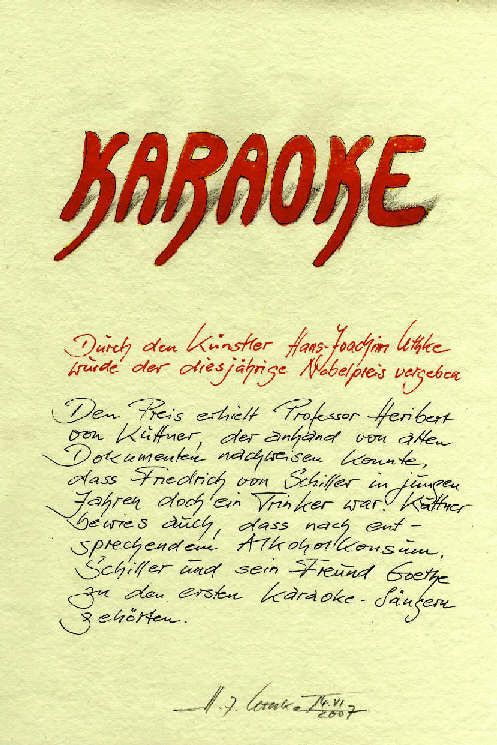 KARAOKE
Durch den Künstler Hans-Joachim Utzke
wurde der diesjährige Nobelpreis vergeben
Den Preis erhielt Professor Heribert
von Küttner, der anhand von alten
Dokumenten nachweisen konnte,
dass Friedrich von Schiller in jungen
Jahren doch ein Trinker war. Küttner
bewies auch, dass nach ent-
sprechendem Alkoholkonsum,
Schiller und sein Freund Goethe
zu den ersten Karaoke-Sängern
gehörten.
H. J. Utzke
2007